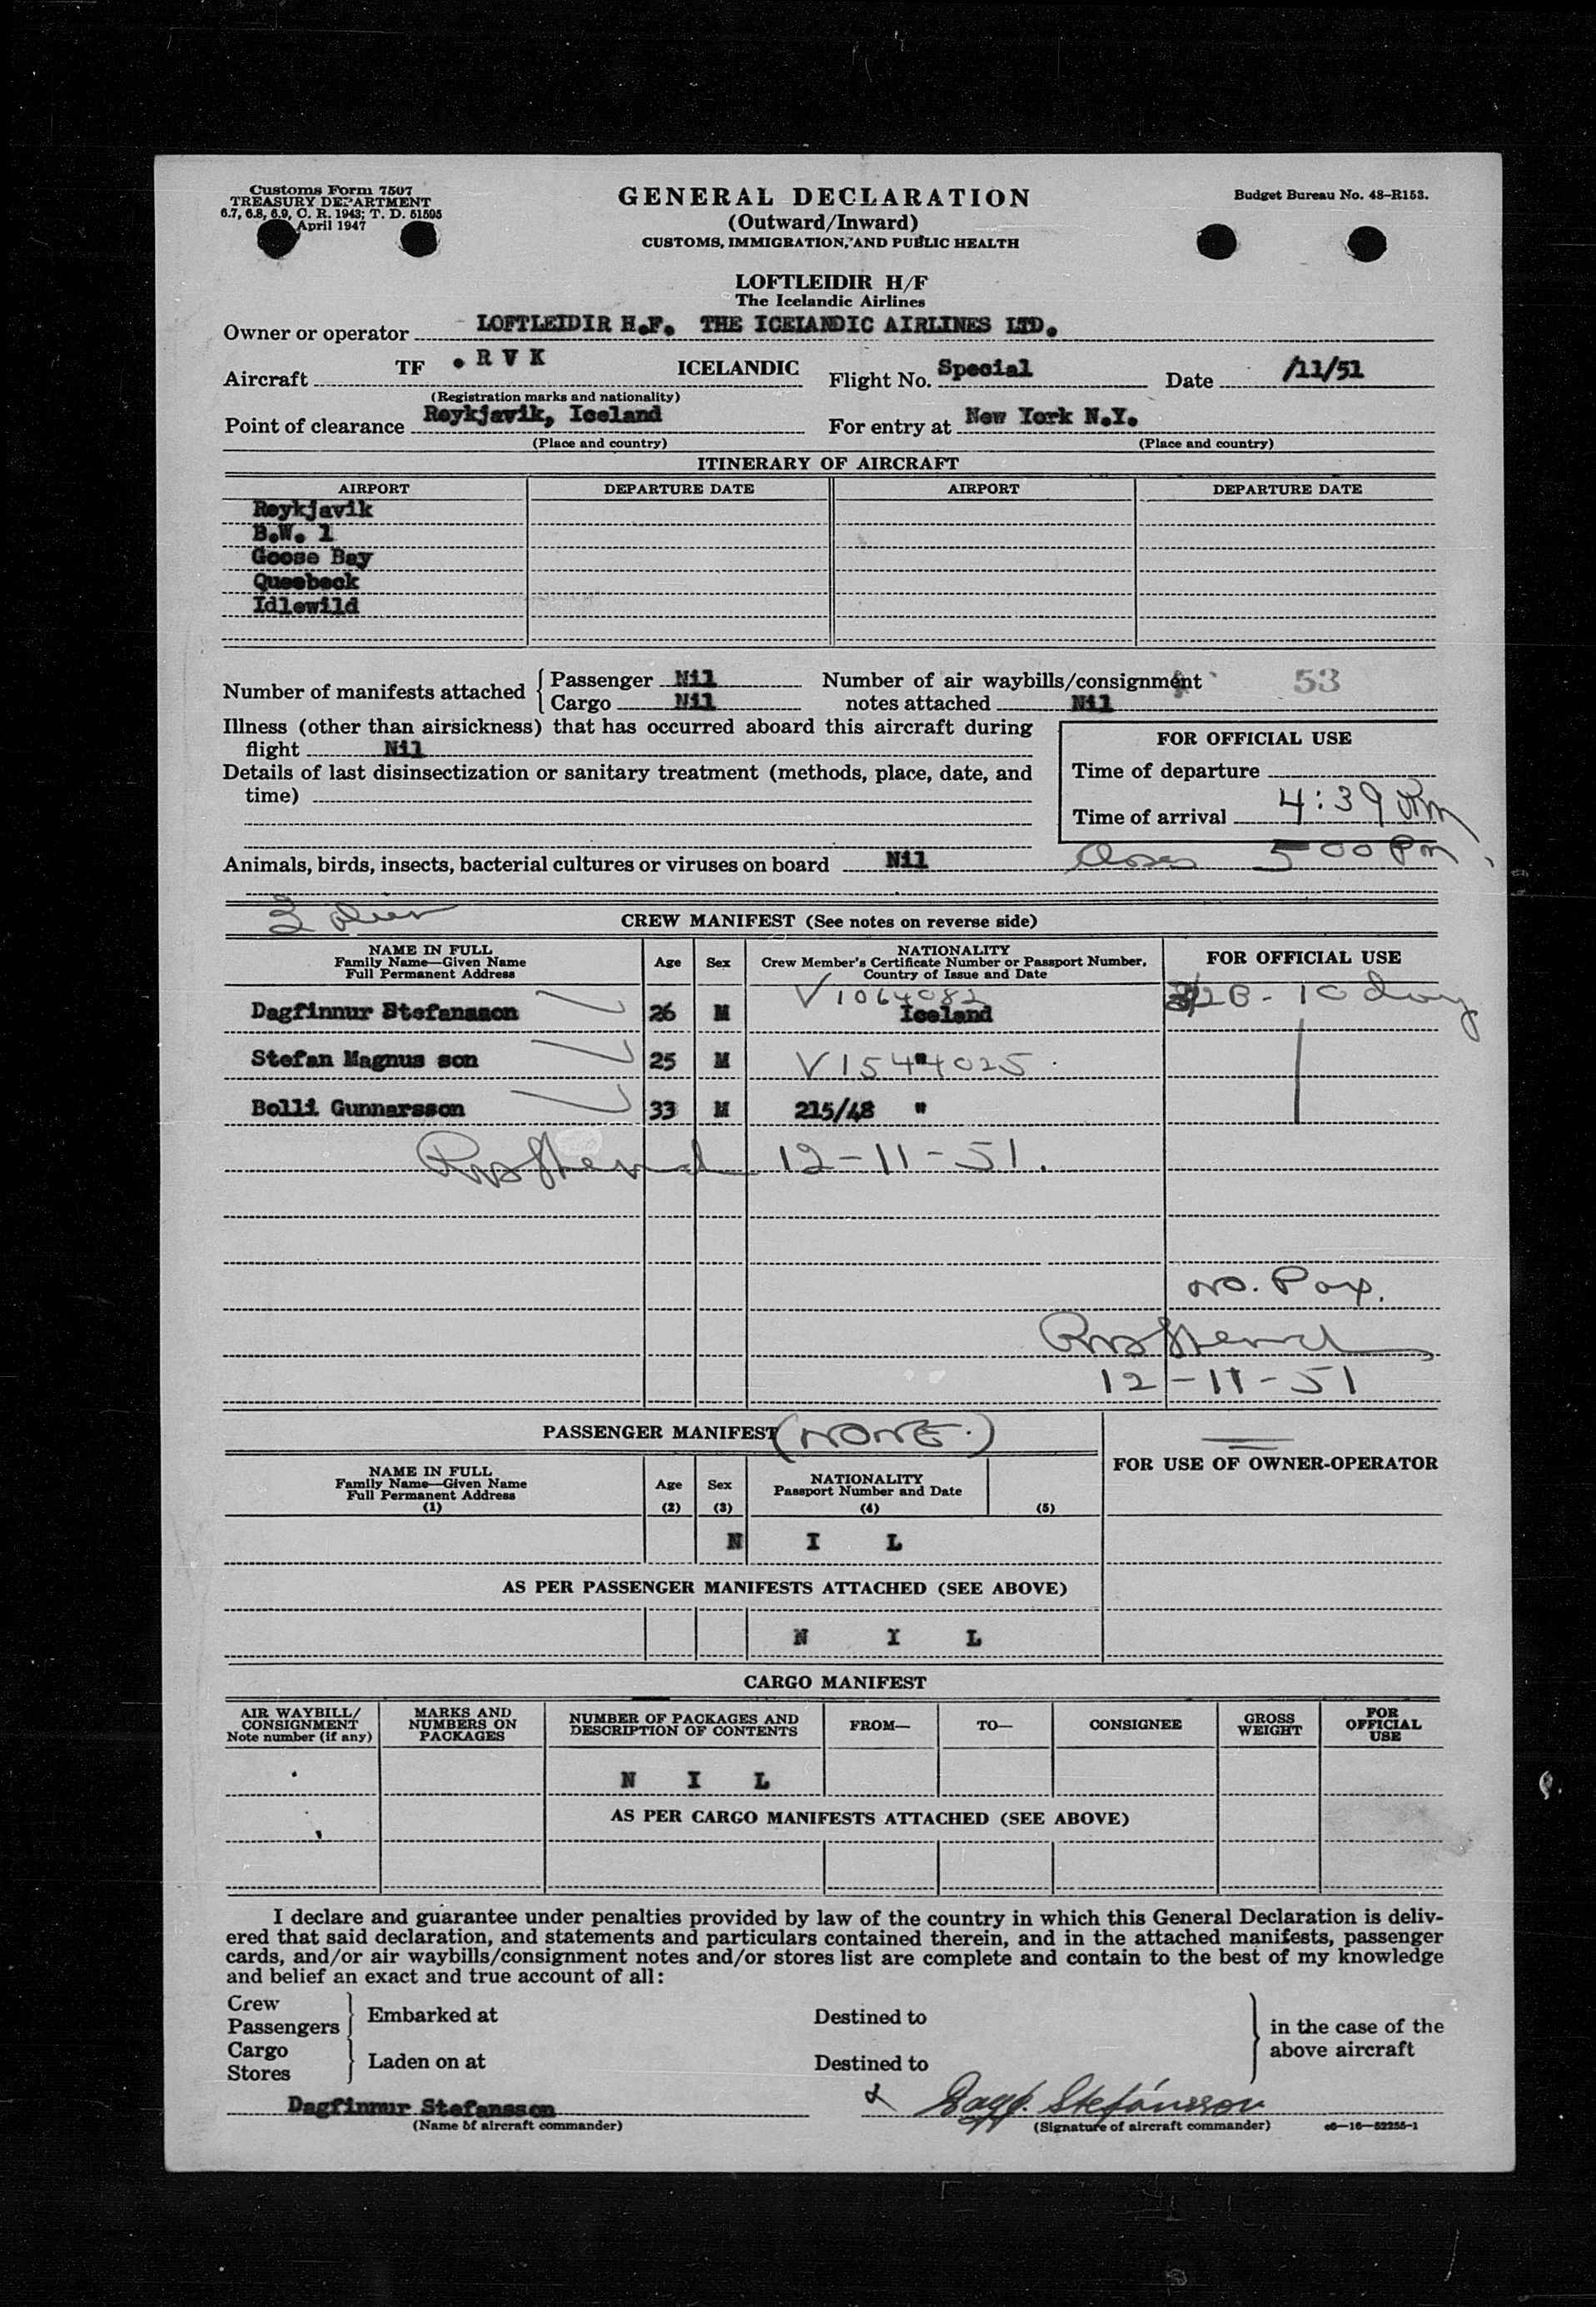 Customs Form 7507
TREASURY DEPARTMENT
6.7, 6.8, 6.9, C. R. 1943; T. D. 51595
April 1947
GENERAL DECLARATION
(Outward/Inward)
CUSTOMS, IMMIGRATION, AND PUBLIC HEALTH
Budget Bureau No. 48-R153.
LOFTLEIDIR H/F
The Icelandic Airlines
Owner or operator LOFTLEIDIR H.F. THE ICELANDIC AIRLINES LTD.
Aircraft TF . R V K ICELANDIC Flight No. Special Date /11/51
(Registration marks and nationality)
Point of clearance Reykjavik, Iceland For entry at New York N.Y.
(Place and country) (Place and country)
ITINERARY OF AIRCRAFT
AIRPORT DEPARTURE DATE AIRPORT DEPARTURE DATE
Reykjavik
B.W. 1
Goose Bay
Queebeck
Idlewild
Number of manifests attached Passenger Nil Number of air waybills/consignment 53
Cargo Nil notes attached Nil
Illness (other than airsickness) that has occurred aboard this aircraft during
flight Nil
Details of last disinsectization or sanitary treatment (methods, place, date, and
time)
FOR OFFICIAL USE
Time of departure
Time of arrival 4:39 Pm
Animals, birds, insects, bacterial cultures or viruses on board Nil 5 00 Pm
3
CREW MANIFEST (See notes on reverse side)
NAME IN FULL
Family Name—Given Name
Full Permanent Address
Age Sex
NATIONALITY
Crew Member's Certificate Number or Passport Number,
Country of Issue and Date
FOR OFFICIAL USE
V1064082
Dagfinnur Stefansson 26 M Iceland
Stefan Magnus son 25 M " V1544025
Bolli Gunnarsson 33 M 215/48 "
12-11-51.
no. Pax.
12-11-51
PASSENGER MANIFEST (NONE.)
FOR USE OF OWNER-OPERATOR
NAME IN FULL
Family Name—Given Name
Full Permanent Address
(1)
Age
(2)
Sex
(3)
NATIONALITY
Passport Number and Date
(4) (5)
N I L
AS PER PASSENGER MANIFESTS ATTACHED (SEE ABOVE)
N I L
CARGO MANIFEST
AIR WAYBILL/
CONSIGNMENT
Note number (if any)
MARKS AND
NUMBERS ON
PACKAGES
NUMBER OF PACKAGES AND
DESCRIPTION OF CONTENTS
FROM— TO— CONSIGNEE
GROSS
WEIGHT
FOR
OFFICIAL
USE
N I L
AS PER CARGO MANIFESTS ATTACHED (SEE ABOVE)
I declare and guarantee under penalties provided by law of the country in which this General Declaration is deliv-
ered that said declaration, and statements and particulars contained therein, and in the attached manifests, passenger
cards, and/or air waybills/consignment notes and/or stores list are complete and contain to the best of my knowledge
and belief an exact and true account of all:
Crew
Passengers Embarked at Destined to in the case of the
Cargo above aircraft
Stores Laden on at Destined to
Dagfinnur Stefansson Dagf. Stefánsson
(Name of aircraft commander) (Signature of aircraft commander) c6—16—52255-1